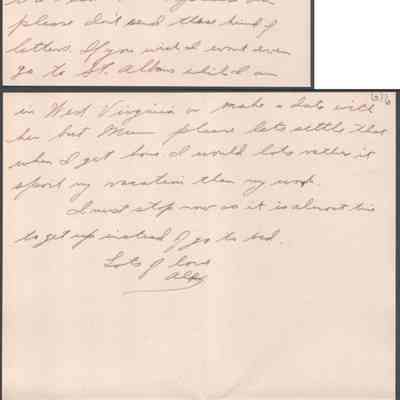 please don't send these kind of
letters. If you wish I wont even
go to St. Albans while I am
(6) 6
in West Virginia or make a date with
her but Mum please lets settle that
when I get home. I would lots rather it
spoil my vacation than my work.
I must stop now as it is almost time
to get up instead of go to bed.
Lots of love